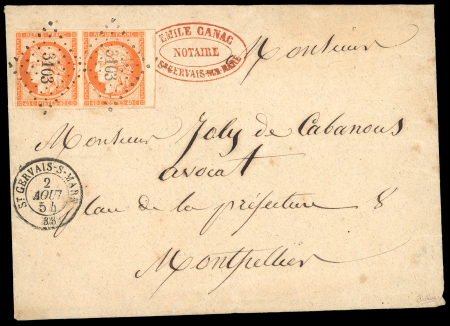 3103 3103
EMILE CANAC
NOTAIRE
ST GERVAIS-SUR-MARE
Monsieur
Monsieur Joly de Cabanous
avocat
place de la préfecture 8
Montpellier
ST GERVAIS-S-MARE
2
AOUT
54
(33)